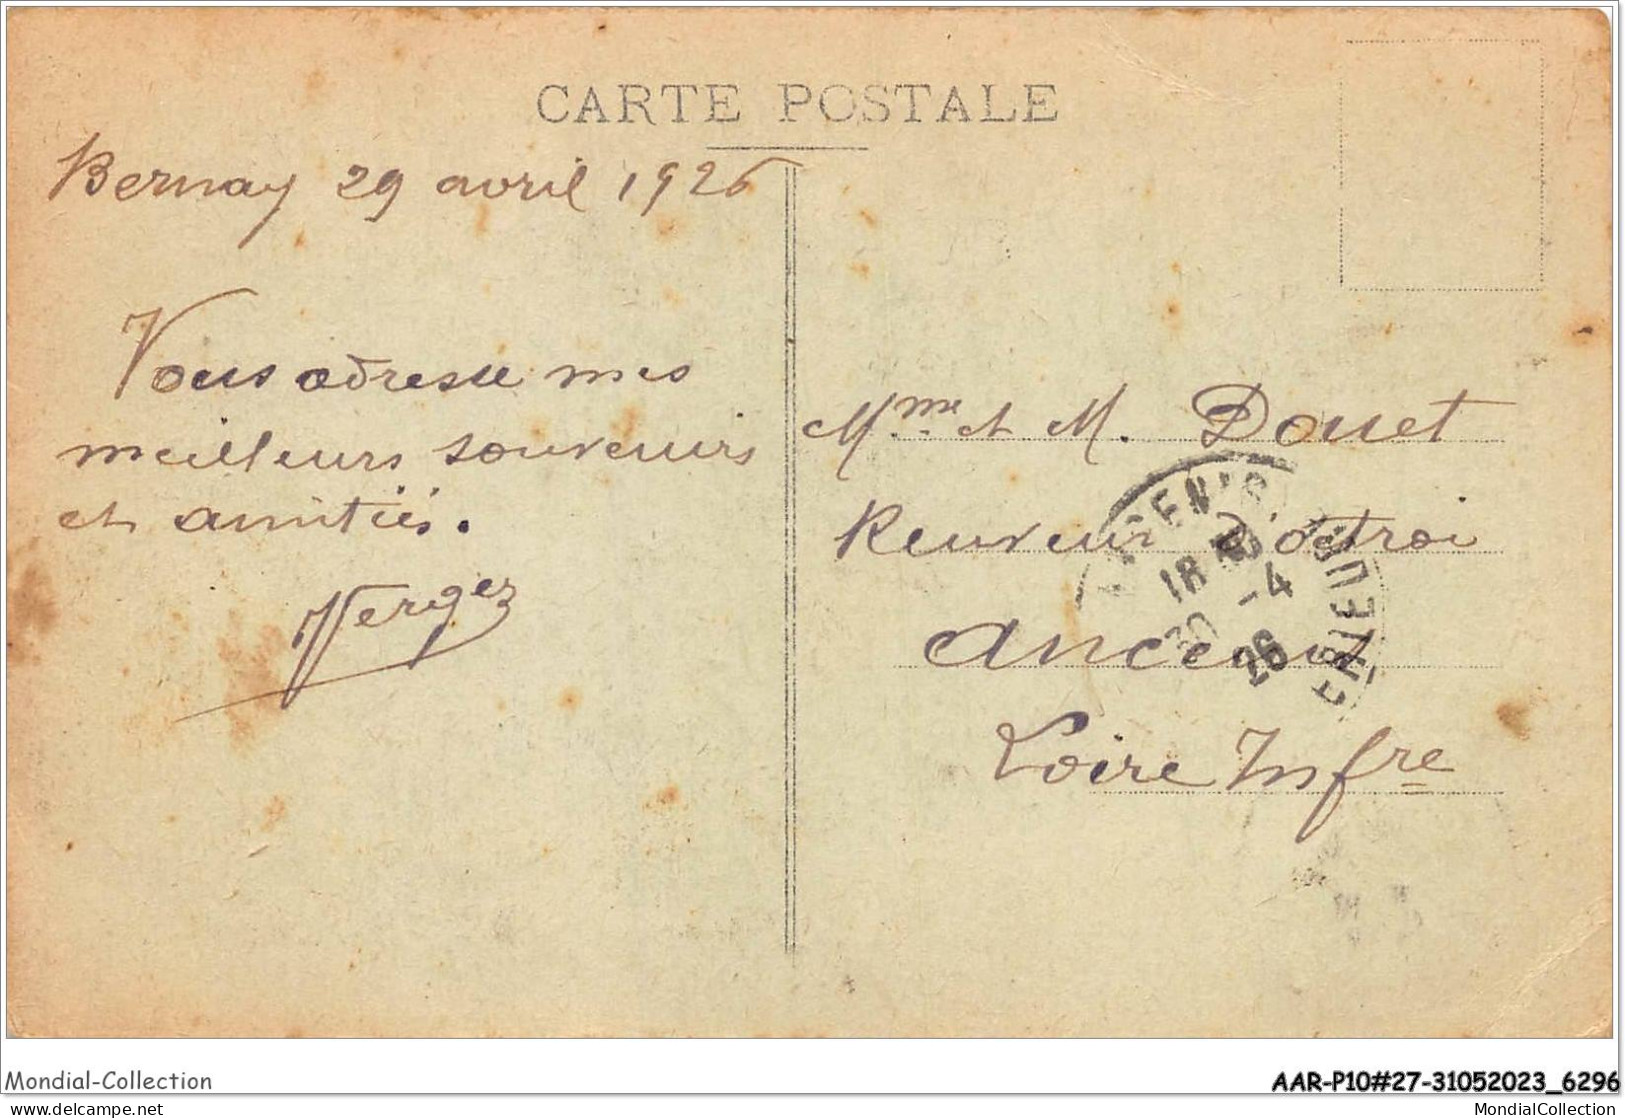 CARTE POSTALE
Bernay 29 avril 1926
Vous adresse mes
meilleurs souvenirs
et amitiés.
Vergez
Mme et M. Douet
Receveur d'octroi
Ancenis
Loire Infre
ANCENIS
18
30 -4
26
INFERIEURE
Mondial-Collection
AAR-P10#27-31052023_6296
delcampe.net
MondialCollection